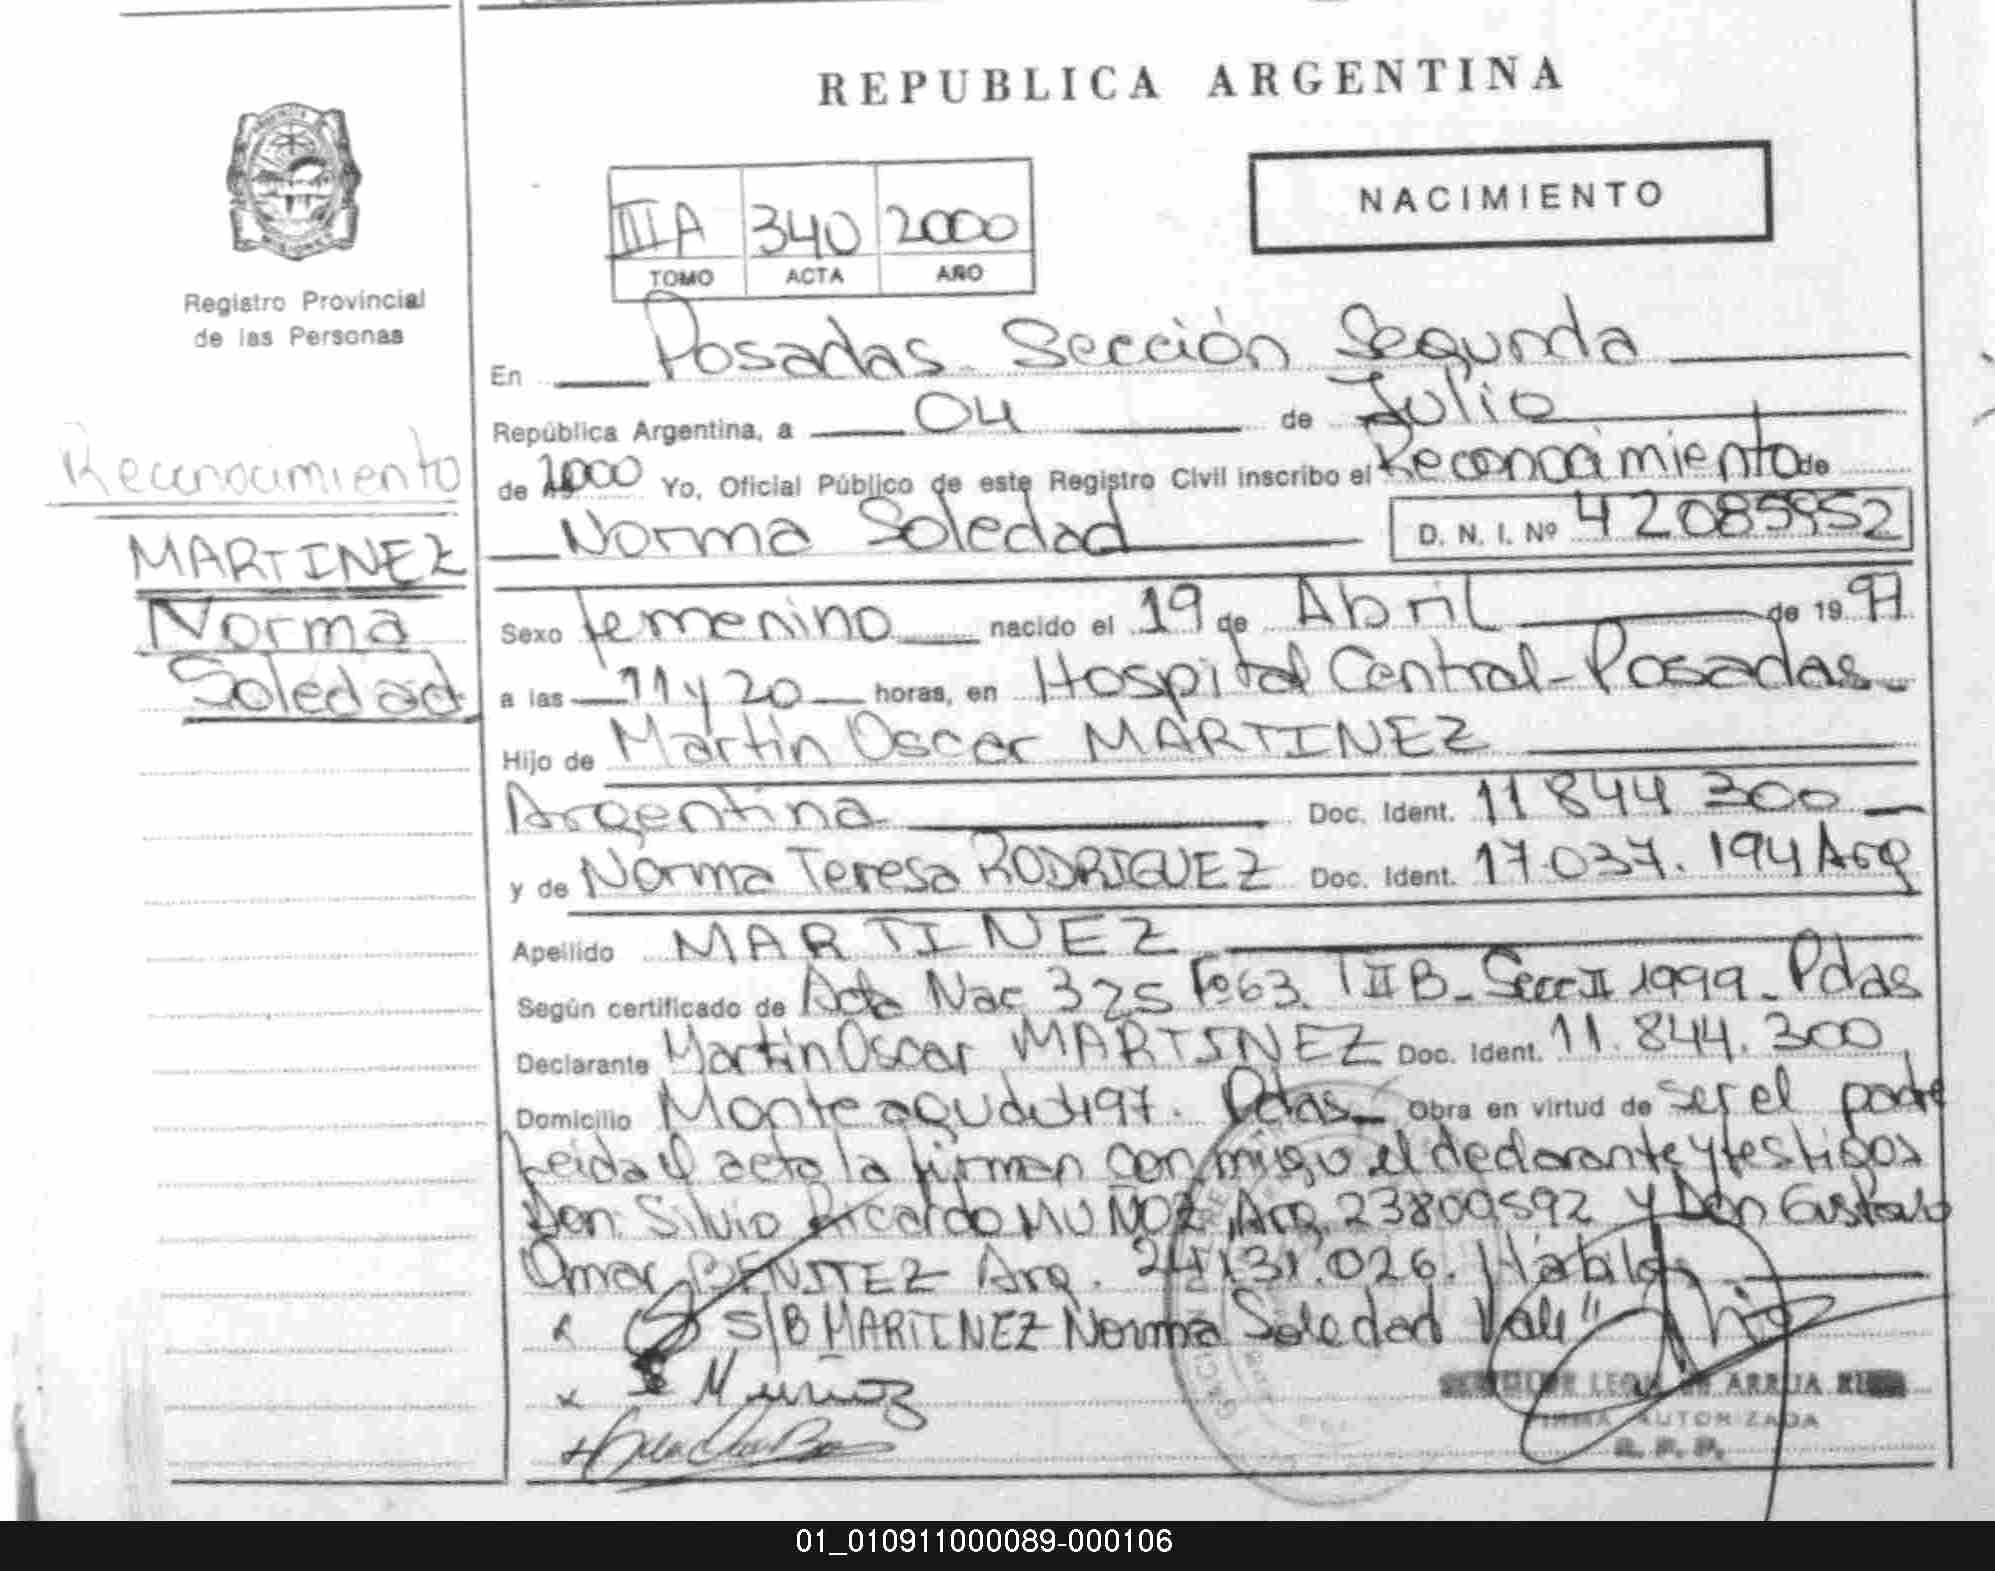 REPUBLICA ARGENTINA
NACIMIENTO
III A 340 2000
TOMO ACTA AÑO
Registro Provincial
de las Personas
En Posadas - Sección Segunda
República Argentina, a 04 de Julio
de 2000 Yo, Oficial Público de este Registro Civil inscribo el Reconocimiento de
Norma Soledad D. N. I. Nº 42085952
Reconocimiento
MARTINEZ
Norma
Soledad
Sexo femenino nacido el 19 de Abril de 1997
a las 11 y 20 horas, en Hospital Central - Posadas -
Hijo de Martin Oscar MARTINEZ
Argentina Doc. Ident. 11 844 300
y de Norma Teresa RODRIGUEZ Doc. Ident. 17.037.194 Arg
Apellido MARTINEZ
Según certificado de Acta Nac 325 Fº 63 T II B - Secc II 1999 - Pdas
Declarante Martin Oscar MARTINEZ Doc. Ident. 11.844.300
Domicilio Monteagudo 497. Pdas Obra en virtud de ser el padre
Leida el acta la firman conmigo el declarante y testigos
Don: Silvio Ricardo MUÑOZ, Arg. 23809592 y Don Gustavo
Omar BENITEZ Arg. 24.131.026. Hábiles
S/B MARTINEZ Norma Soledad Vale"
Muñoz
LEON DE ARRUA
FIRMA AUTORIZADA
R. P. P.
01_010911000089-000106